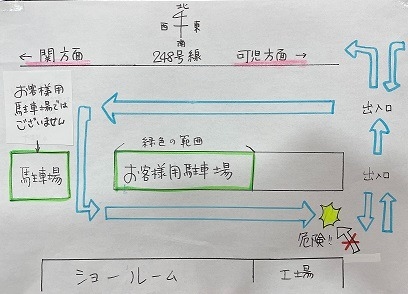 北
西 東
南
← 関方面
248号線
可児方面 →
お客様用
駐車場では
ございません
出入口
緑色の範囲
駐車場
お客様用駐車場
出入口
危険!!
ショールーム
工場